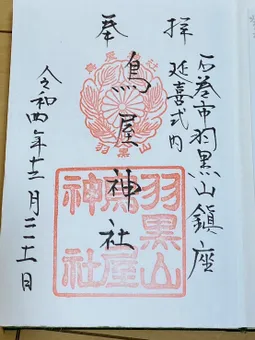 奉拝
石巻市羽黒山鎮座
延喜式内
鳥屋神社
令和四年十二月
羽黒山
羽黒山
鳥屋
神社